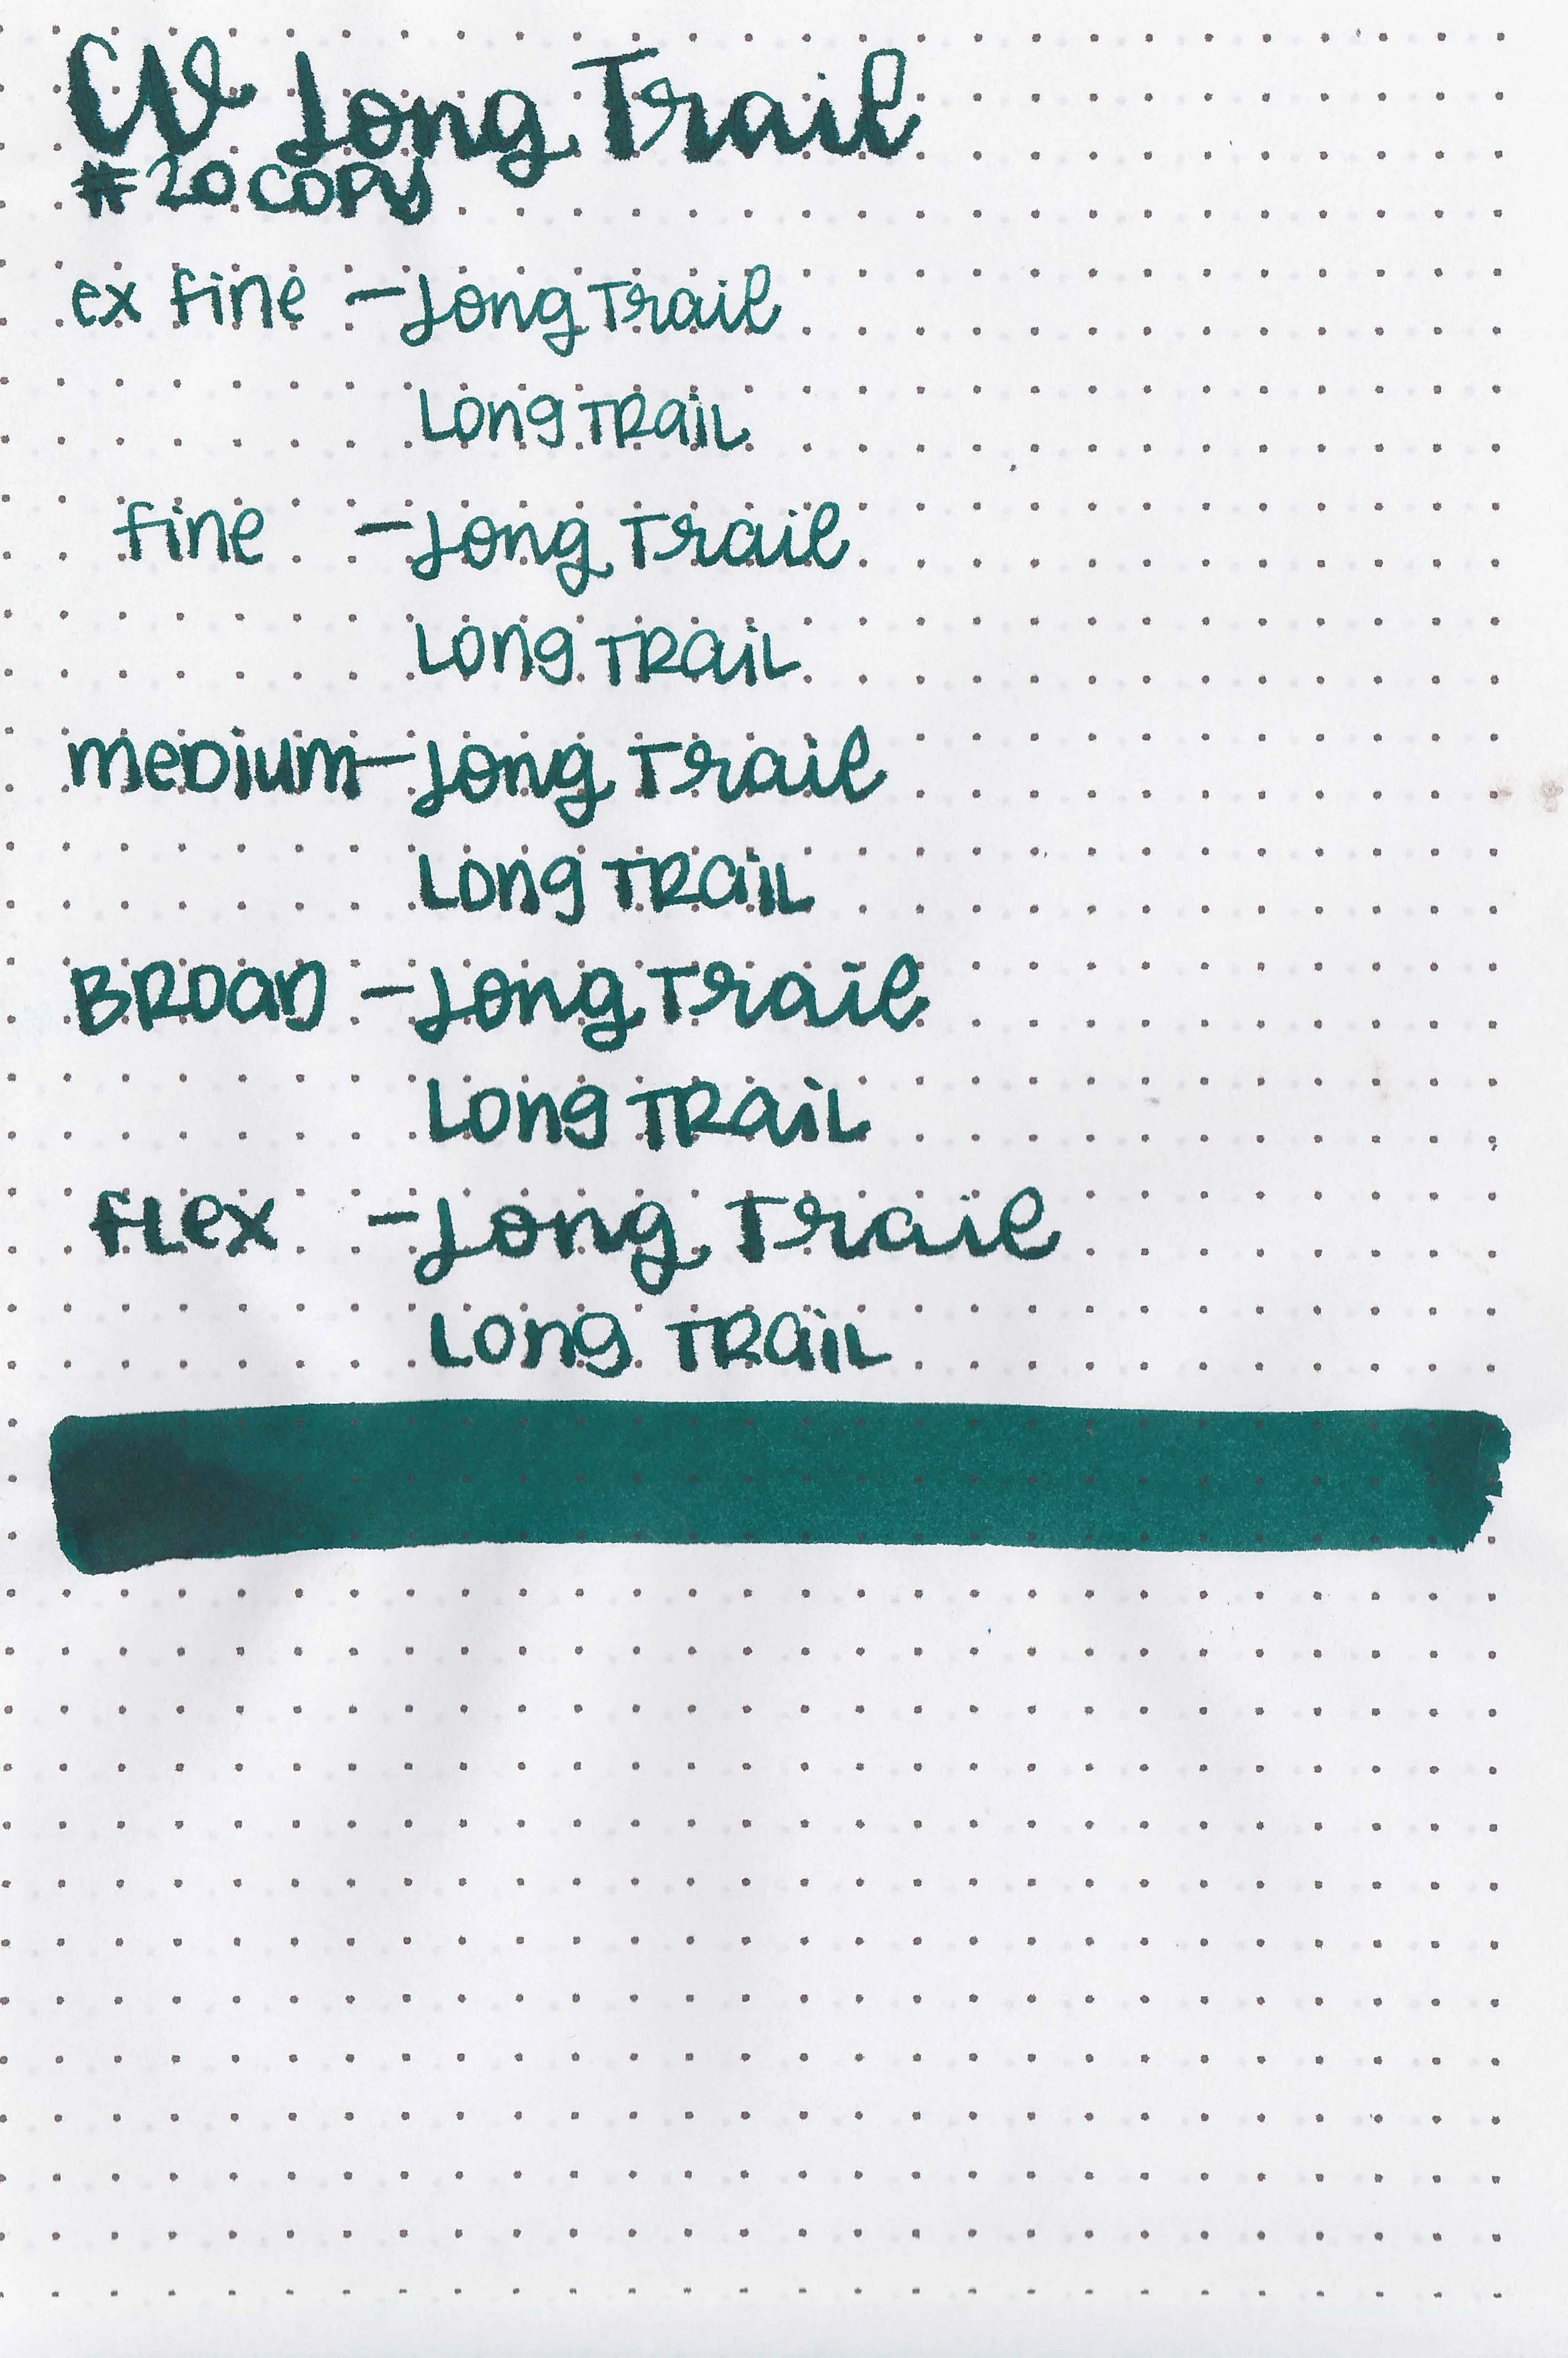 CV Long Trail
#20 COPY
ex fine - Long Trail
Long TRAIL
fine - Long Trail
Long TRAIL
MEDIUM - Long Trail
Long TRAIL
BROAD - Long Trail
Long TRAIL
FLEX - Long Trail
Long TRAIL